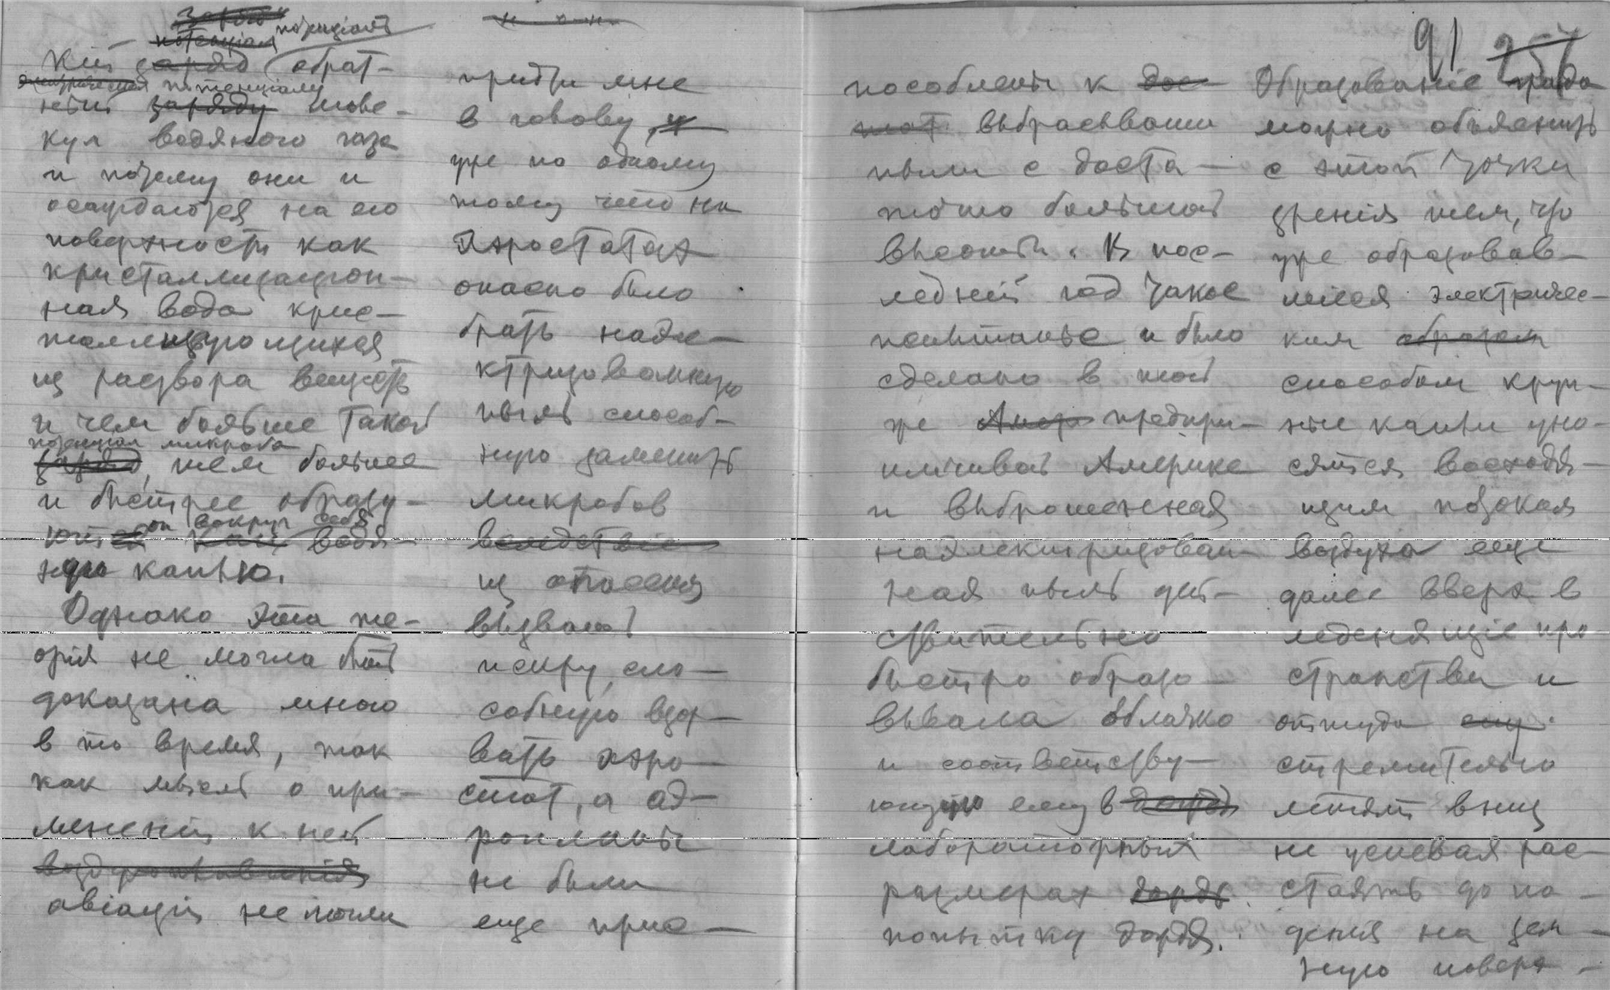 потенціалъ
кій заряд обрат-
потенціалу
ный заряду моле-
кул водяного газа
и почему они и
осаждаются на его
поверхности как
кристаллизацион-
ная вода крис-
таллизующихся
из раствора веществ
и чем больше такой
потенціал микроба
заряд, тем больше
и быстрее образу-
он вокруг себя
ют водя-
ную каплю.
Однако эта те-
орія не могла быть
доказана мною
в то время, так
как мысль о при-
мененіи к ней
воздухоплаванія
авіаціи не могли
придти мне
в голову, и
уже по одному
тому что на
аэростатах
опасно было
брать наэле-
ктризованную
пыль способ-
ную заменить
микробов
вследствіе
из опасенія
вызвать
искру, спо-
собную взор-
вать аэро-
стат, а аэ-
ропланы
не были
еще прис-
91 257
пособлены к дос
выбрасыванию
пыли с доста-
точно большой
высоты. В пос-
ледній год такое
испытаніе и было
сделано в той
же Амер предпри-
имчивой Америке
и выброшенная
наэлектризован-
ная пыль дей-
ствительно
быстро образо-
вывала облачко
и соответству-
ющую ему в дождь
лабораторных
размерах дождь
попытку дождя.
Образованіе града
можно объяснить
с этой точки
зренія тем, что
уже образовав-
шіеся электричес-
ким образом
способом круп-
ные капли уно-
сятся восходя-
щим потоком
воздуха еще
далее вверх в
леденящіе про
странства и
откуда
стремительно
летят вниз
не успевая рас-
таять до па-
денія на зем-
ную поверх-